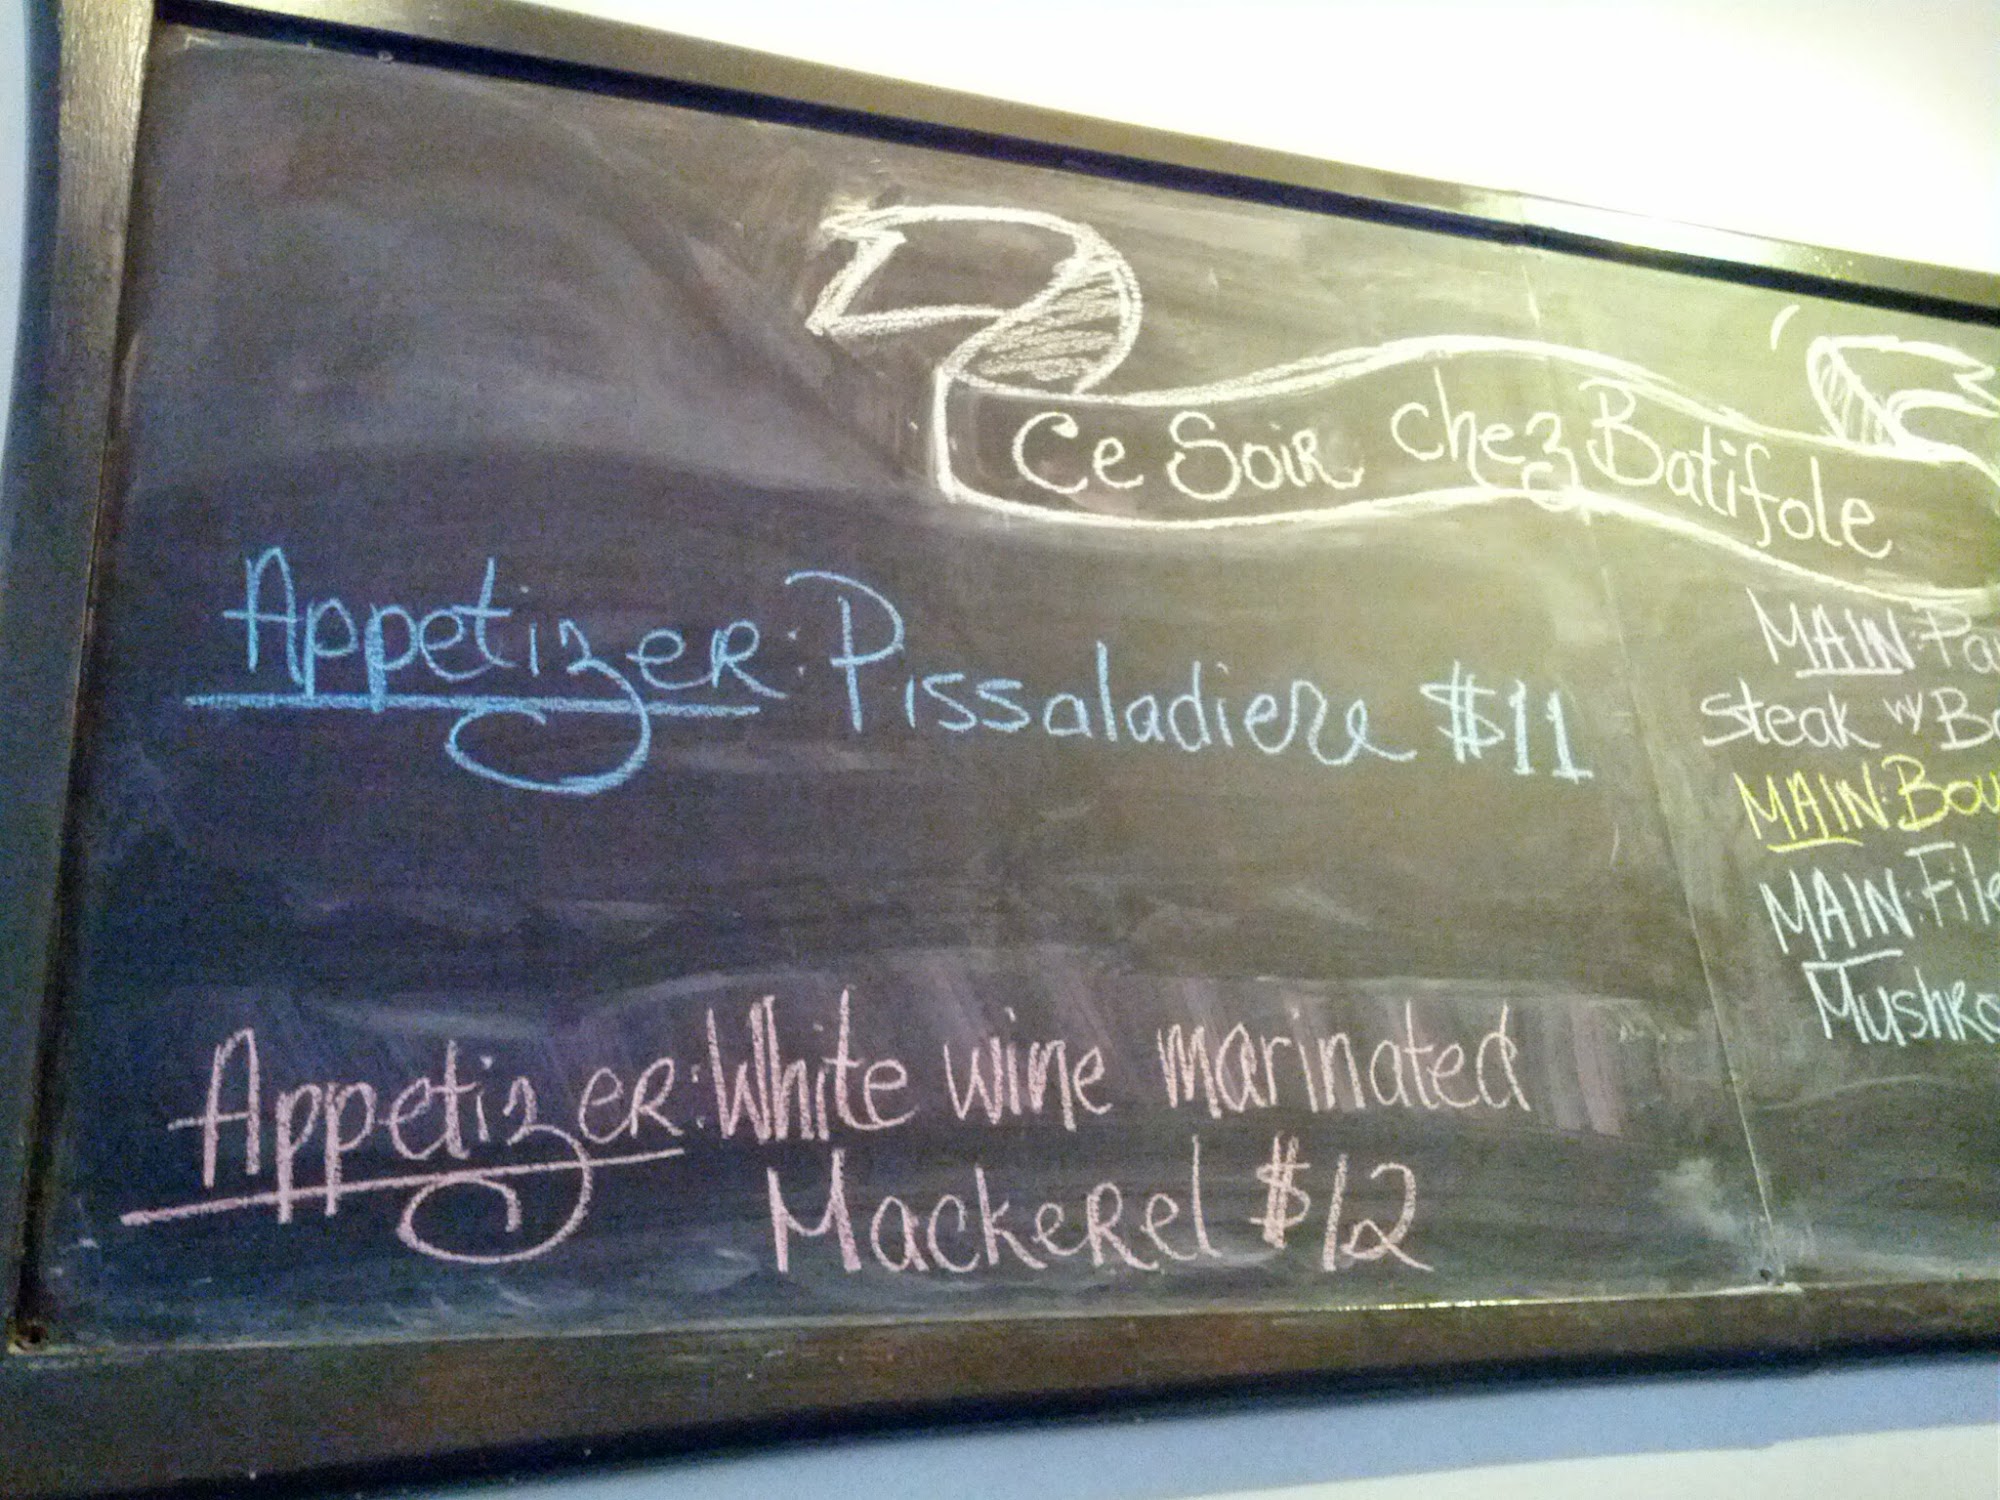 Ce Soir chez Batifole
Appetizer: Pissaladiere $11
Appetizer: White wine marinated
Mackerel $12
MAIN:
steak w/
MAIN:
MAIN: